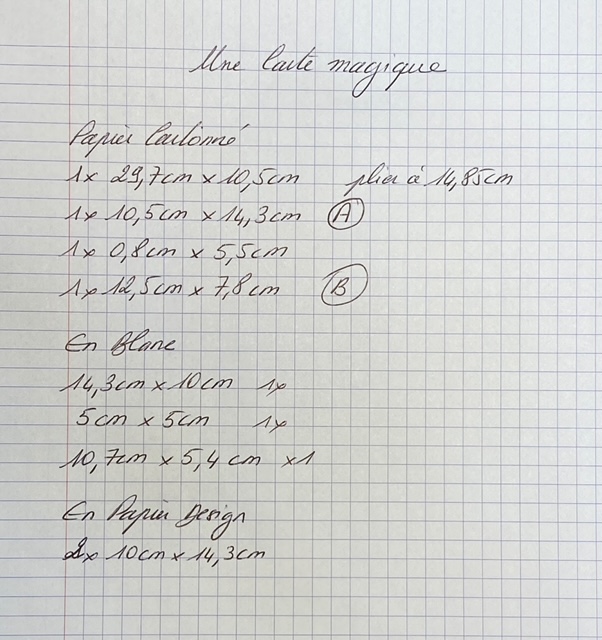 Une Carte magique
Papier Cartonné
1x 29,7cm x 10,5cm plier à 14,85cm
1x 10,5cm x 14,3cm A
1x 0,8cm x 5,5cm
1x 12,5cm x 7,8cm B
En Blanc
14,3cm x 10cm 1x
5cm x 5cm 1x
10,7cm x 5,4cm x1
En Papier Design
2x 10cm x 14,3cm